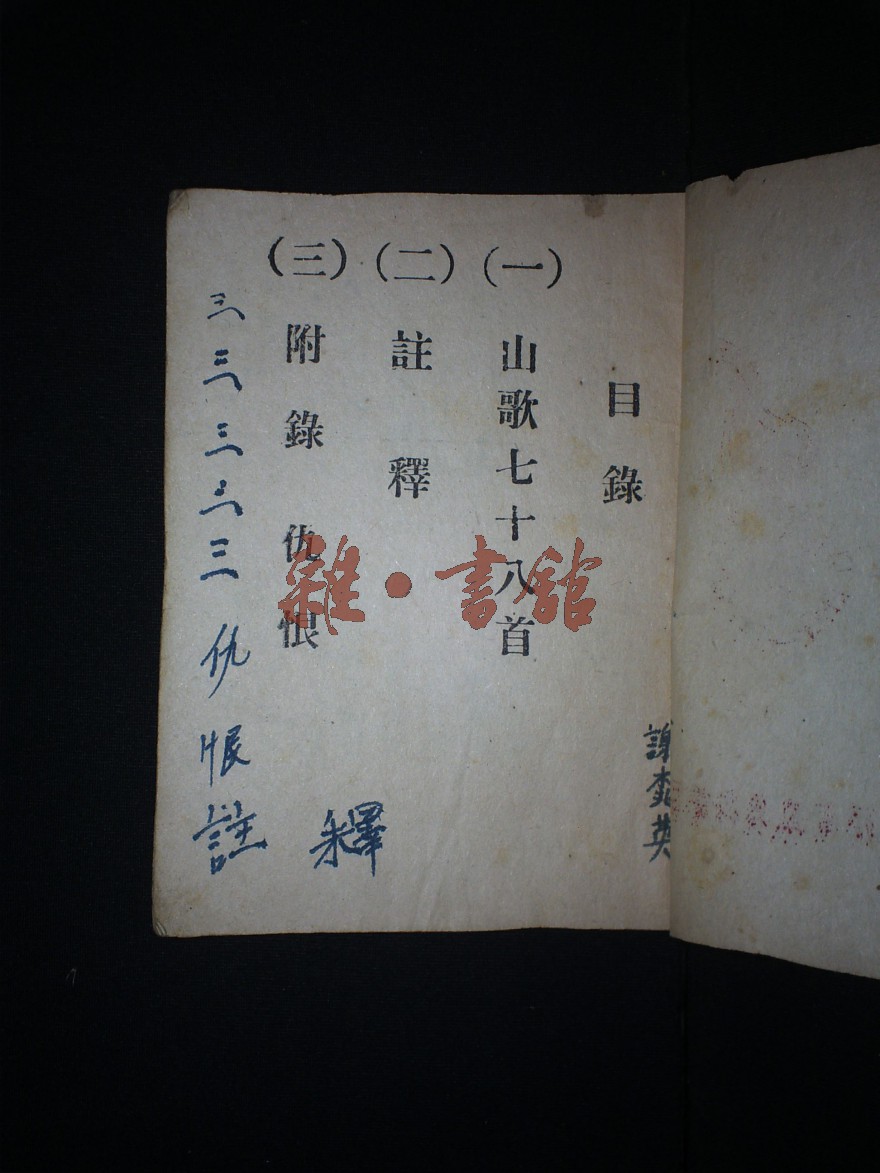 目錄
(一)山歌七十八首
(二)註釋
(三)附錄 仇恨
三三三三三仇恨註
釋
雜·書館